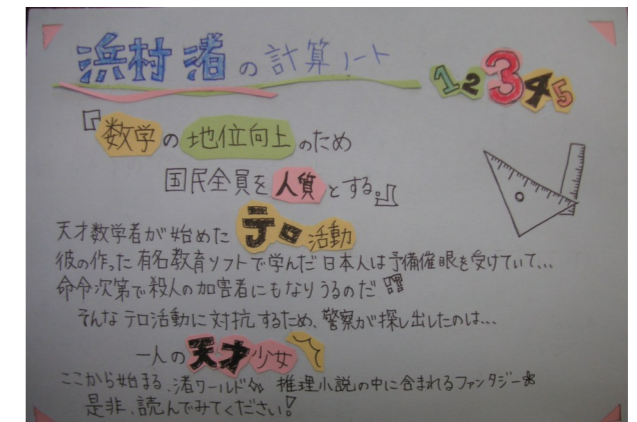 浜村渚の計算ノート
12345
『数学の地位向上のため
国民全員を人質とする。』
天才数学者が始めたテロ活動
彼の作った有名教育ソフトで学んだ日本人は予備催眠を受けていて…
命令次第で殺人の加害者にもなりうるのだ!!!
そんなテロ活動に対抗するため、警察が探し出したのは…
一人の天才少女
ここから始まる、渚ワールド 推理小説の中に含まれるファンタジー
是非、読んでみてください!